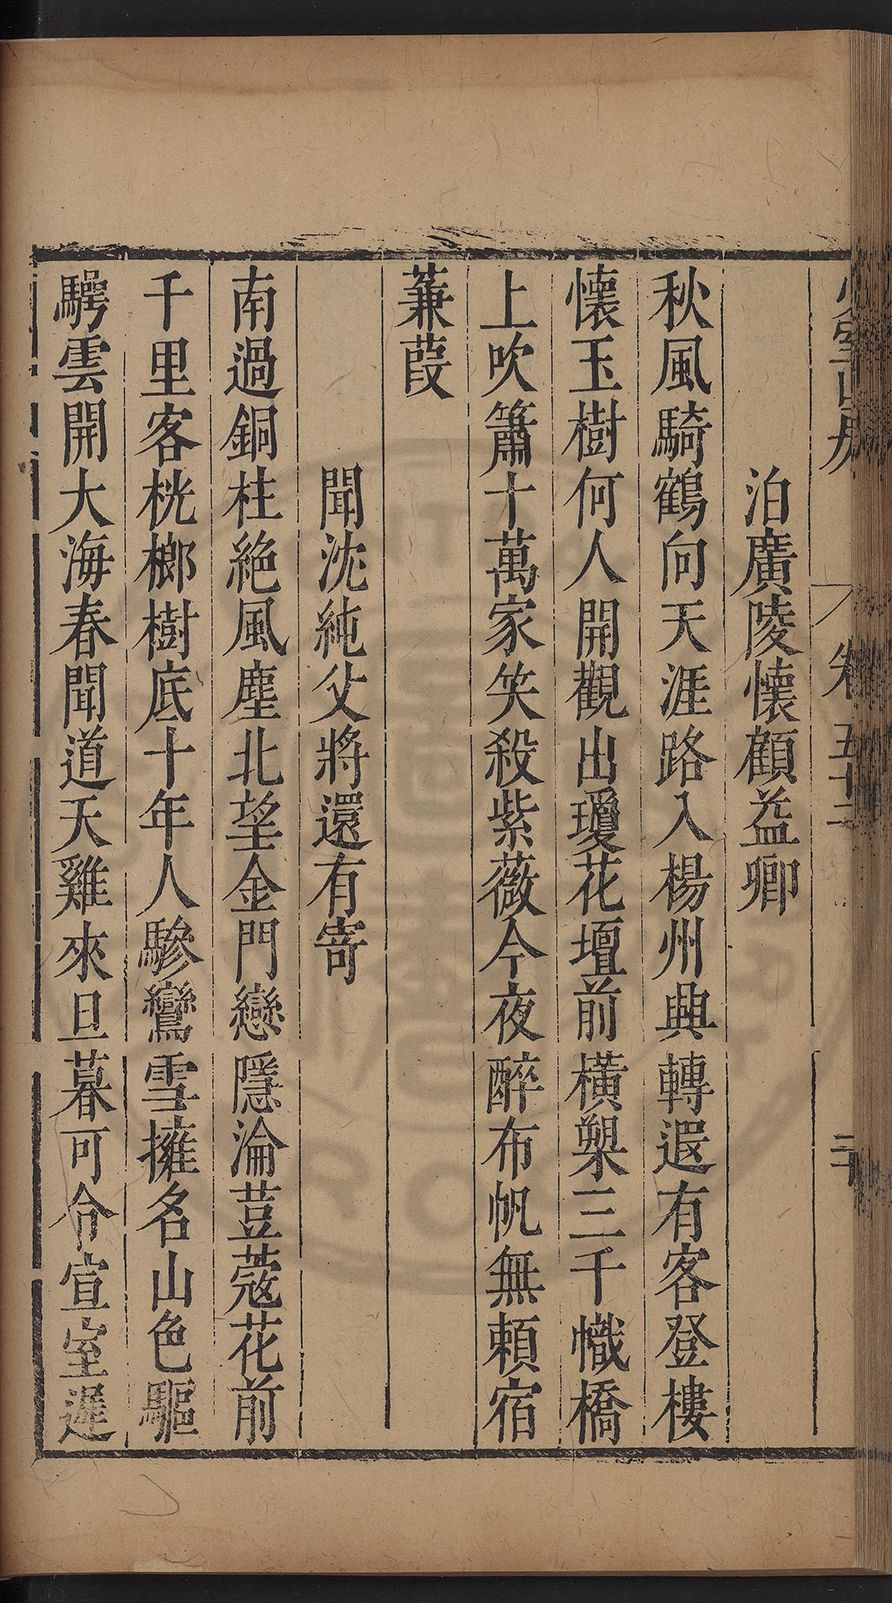 卷五十二
二
泊廣陵懷顧益卿
秋風騎鶴向天涯路入楊州興轉遐有客登樓
懷玉樹何人開觀出瓊花壇前橫槊三千幟橋
上吹簫十萬家笑殺紫薇今夜醉布帆無頼宿
蒹葭
聞沈純父將還有寄
南過銅柱絕風塵北望金門戀隱淪荳蔻花前
千里客桄榔樹底十年人驂鸞雪擁名山色驅
鶚雲開大海春聞道天雞來旦暮可令宣室遲